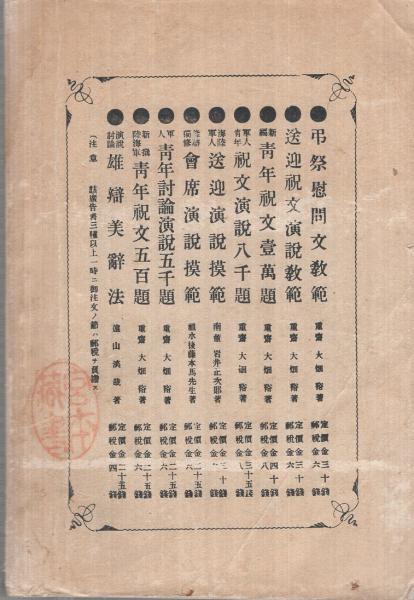 弔祭慰問文教範 重齋 大畑裕著 定價金三十錢 郵税金六錢
送迎祝文演說教範 重齋 大畑裕著 定價金三十錢 郵税金六錢
新編 青年祝文壹萬題 重齋 大畑裕著 定價金四十錢 郵税金八錢
軍人青年 祝文演說八千題 重齋 大畑裕著 定價金三十五錢 郵税金八錢
海陸軍人 送迎演說摸範 南敵 岩井正次郎著 定價金三十錢 郵税金六錢
會席演說摸範 後藤本馬先生著 定價金二十五錢 郵税金六錢
軍人 青年討論演說五千題 重齋 大畑裕著 定價金二十五錢 郵税金六錢
新撰陸海軍 青年祝文五百題 重齋 大畑裕著 定價金二十五錢 郵税金六錢
演說討論 雄辯美辭法 遠山景哉著 定價金二十五錢 郵税金四錢
(注意 該廣告書三種以上一時ニ御注文ノ節ハ郵税ヲ負擔ス